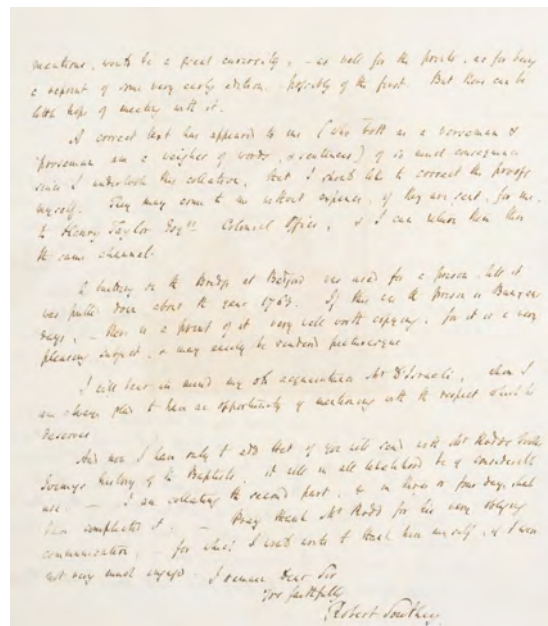 mentions, would be a great curiosity, - as well for the prints, as for being
a reprint of some very early edition. Possibly of the first. But there can be
little hope of meeting with it.
A correct text has appeared to me (who both as a verseman &
proseman am a weigher of words, & sentences) of so much consequence
since I undertook this collection, that I should like to correct the proofs
myself. They may come to me without expence, if they are sent, for me,
to Henry Taylor Esqre. Colonial Office, & I can return them thro
the same channel.
A building on the Bridge at Bedford was used for a prison, till it
was pulled down about the year 1765. If this was the Prison in Bunyan's
days, - there is a print of it very well worth copying, for it is a very
pleasing subject, & may easily be rendered picturesque
I will bear in mind my old acquaintance Mr D'Israeli, whom I
am always glad to have an opportunity of mentioning with the respect which he
deserves
And now I have only to add that if you will send with Mr Rodd's books
Ivimeys history of the Baptists, it will in all likelihood be of considerable
use. - I am collating the second part, & in three or four days, shall
have completed it. - Pray thank Mr Rodd for his very obliging
communication, - for which I would write to thank him myself, if I were
not very much engaged - I remain Dear Sir
Yrs faithfully
Robert Southey.